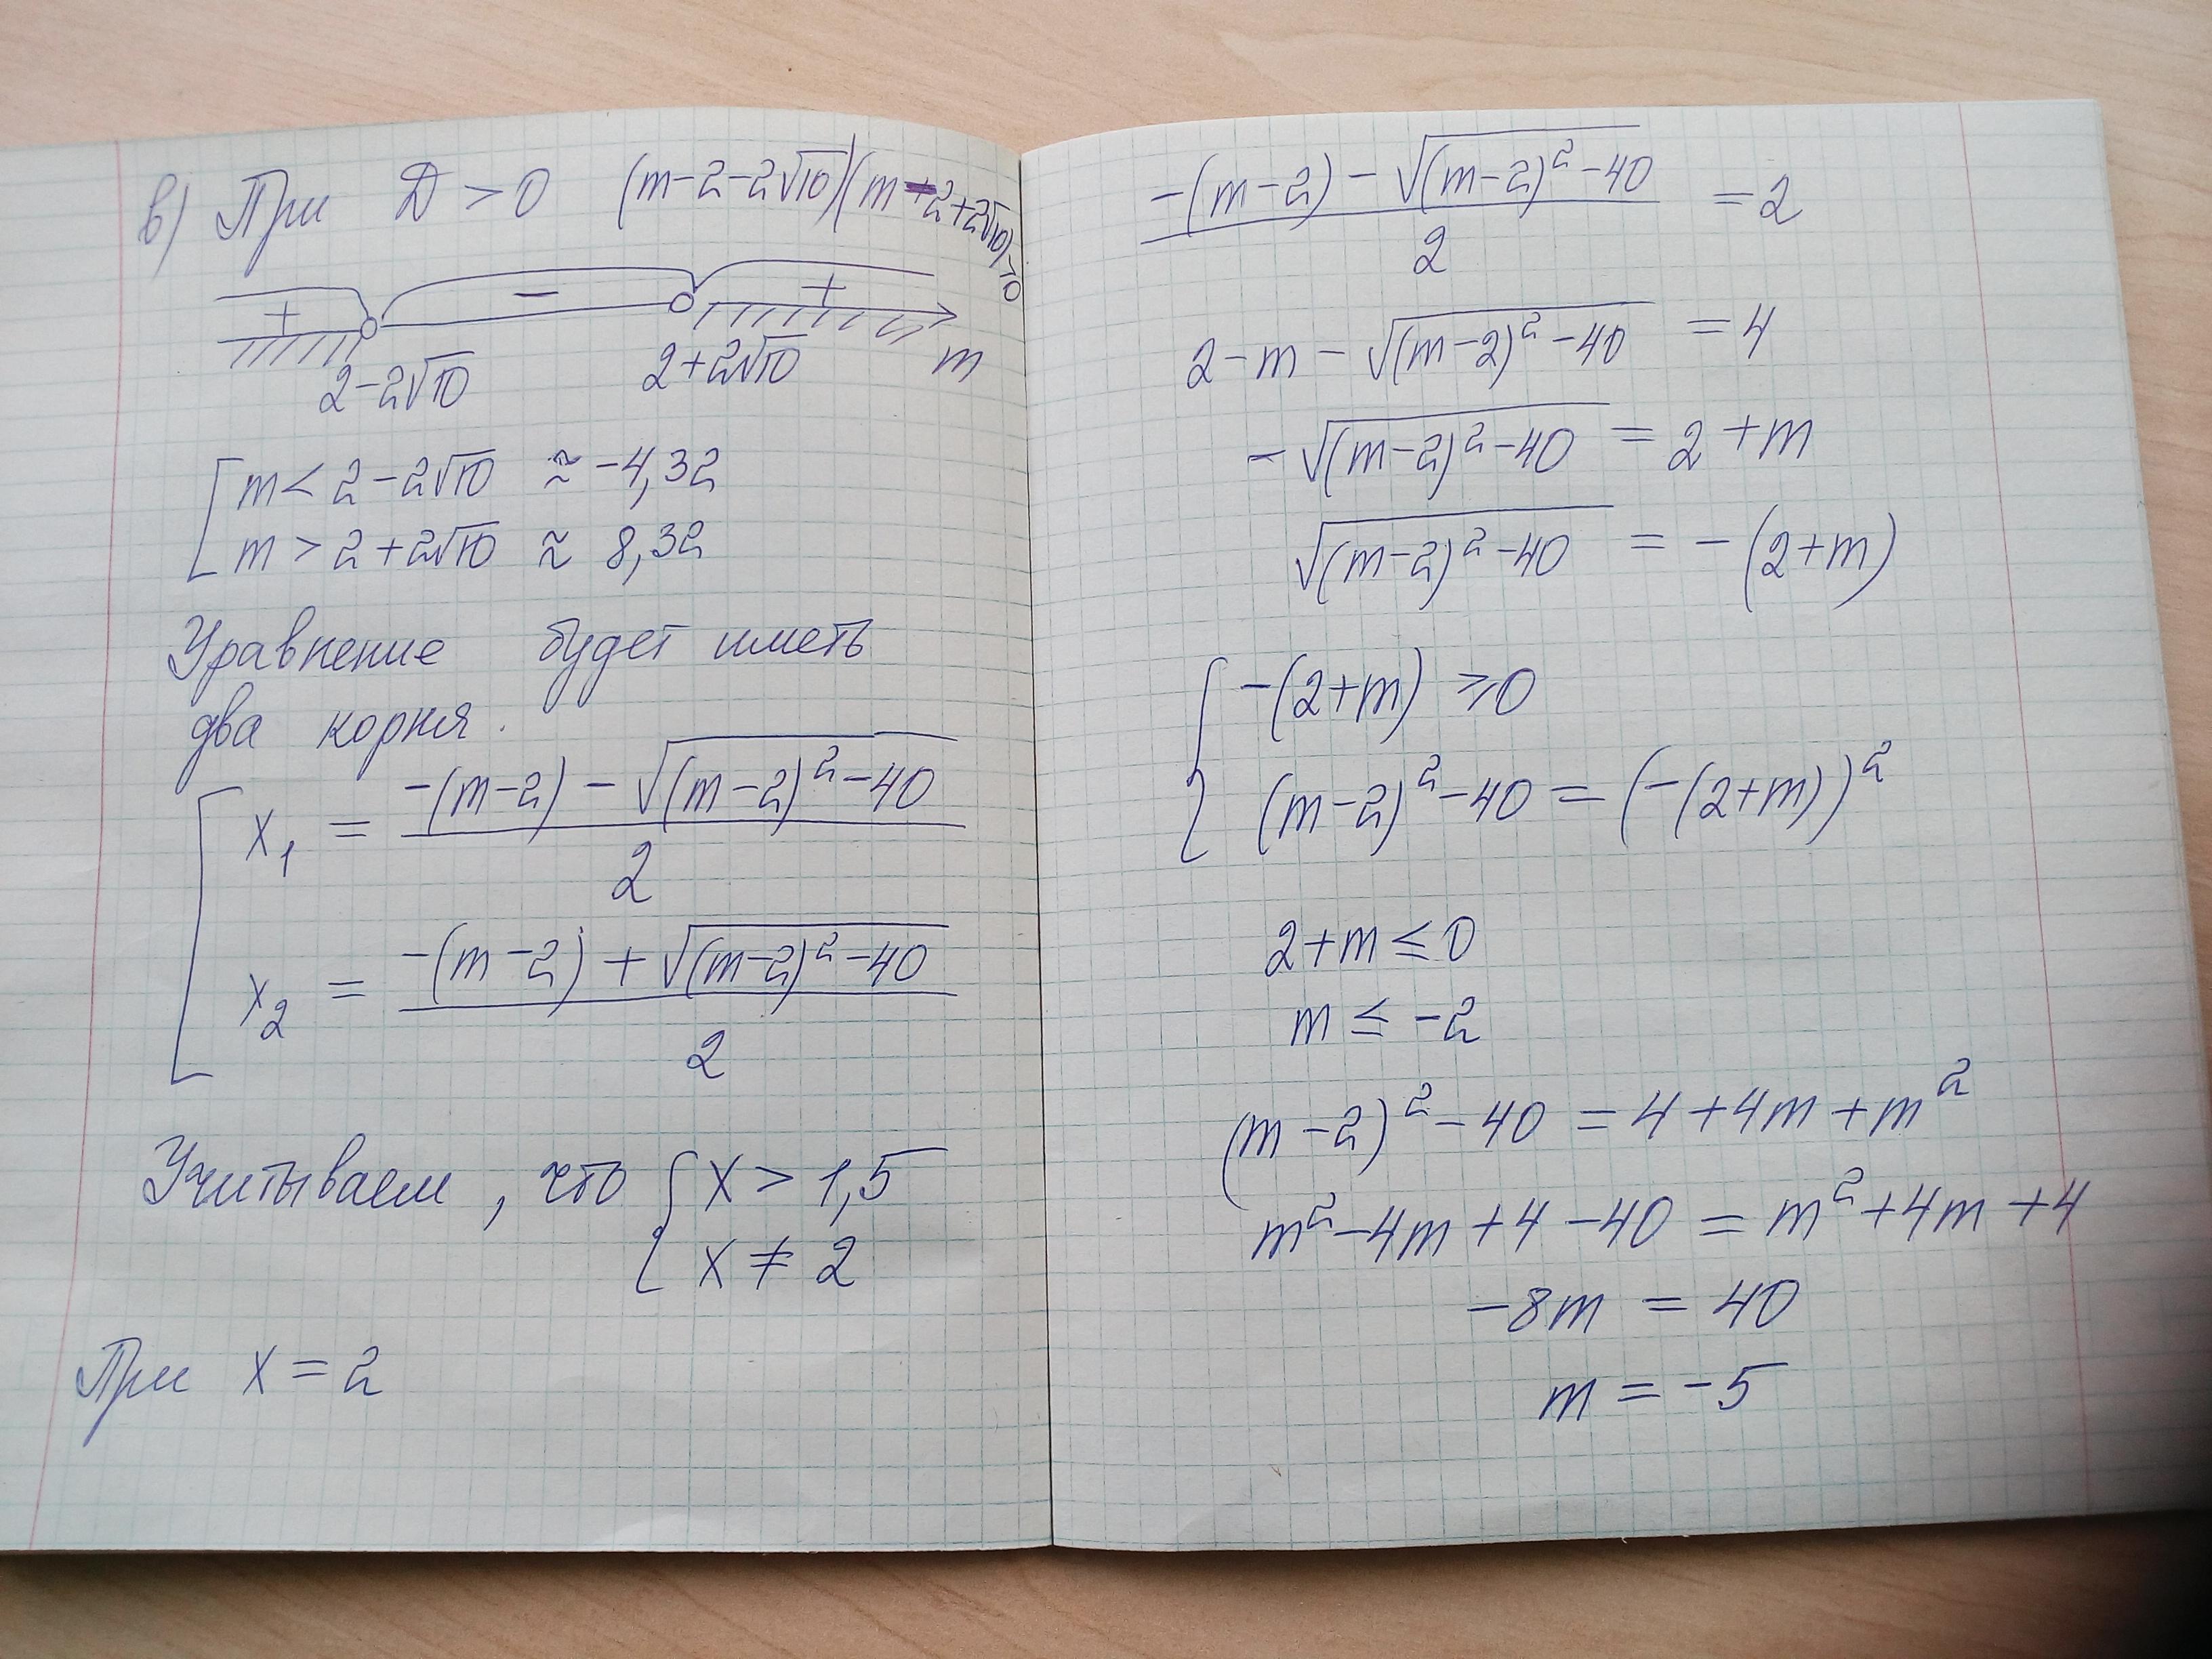 в) При Д > 0 (m-2-2√10)(m-2+2√10)>0
+ - +
2-2√10 2+2√10 m
[ m < 2-2√10 ≈ -4,32
m > 2+2√10 ≈ 8,32
Уравнение будет иметь
два корня.
[ x₁ = (-(m-2) - √((m-2)²-40)) / 2
x₂ = (-(m-2) + √((m-2)²-40)) / 2
Учитываем, что { x > 1,5
x ≠ 2
При x = 2
(-(m-2) - √((m-2)²-40)) / 2 = 2
2-m-√((m-2)²-40) = 4
-√((m-2)²-40) = 2+m
√((m-2)²-40) = -(2+m)
{ -(2+m) ≥ 0
(m-2)²-40 = (-(2+m))²
2+m ≤ 0
m ≤ -2
(m-2)²-40 = 4+4m+m²
m²-4m+4-40 = m²+4m+4
-8m = 40
m = -5